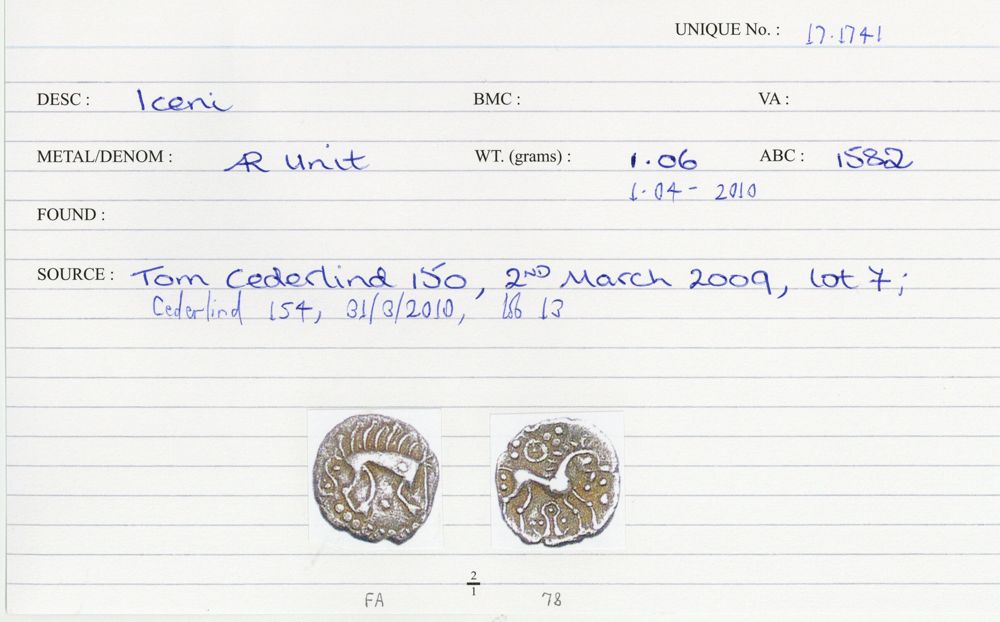 UNIQUE No. : 17.1741
DESC : Iceni BMC : VA :
METAL/DENOM : AR Unit WT. (grams) : 1.06 ABC : 1582
1.04 - 2010
FOUND :
SOURCE : Tom Cederlind 150, 2ND March 2009, lot 7;
Cederlind 154, 31/3/2010, lot 13
2
1
FA 78